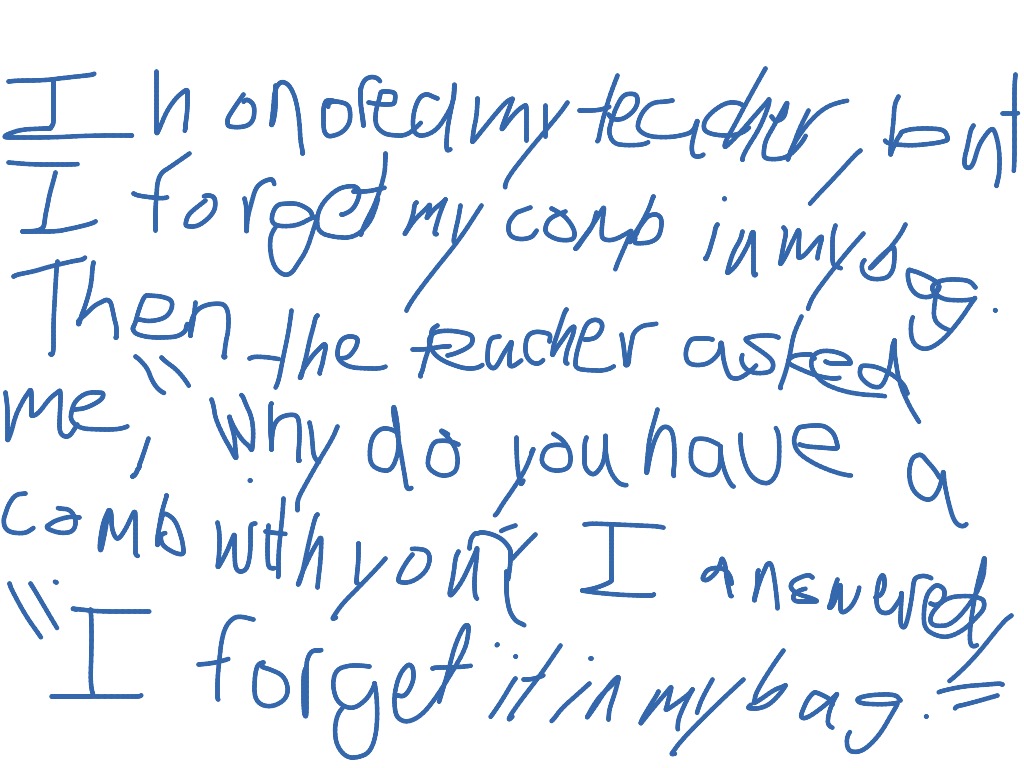 I honored my teacher, but
I forget my comb in my
Then the teacher asked
me, "why do you have a
comb with you? I answered,
"I forget it in my bag."